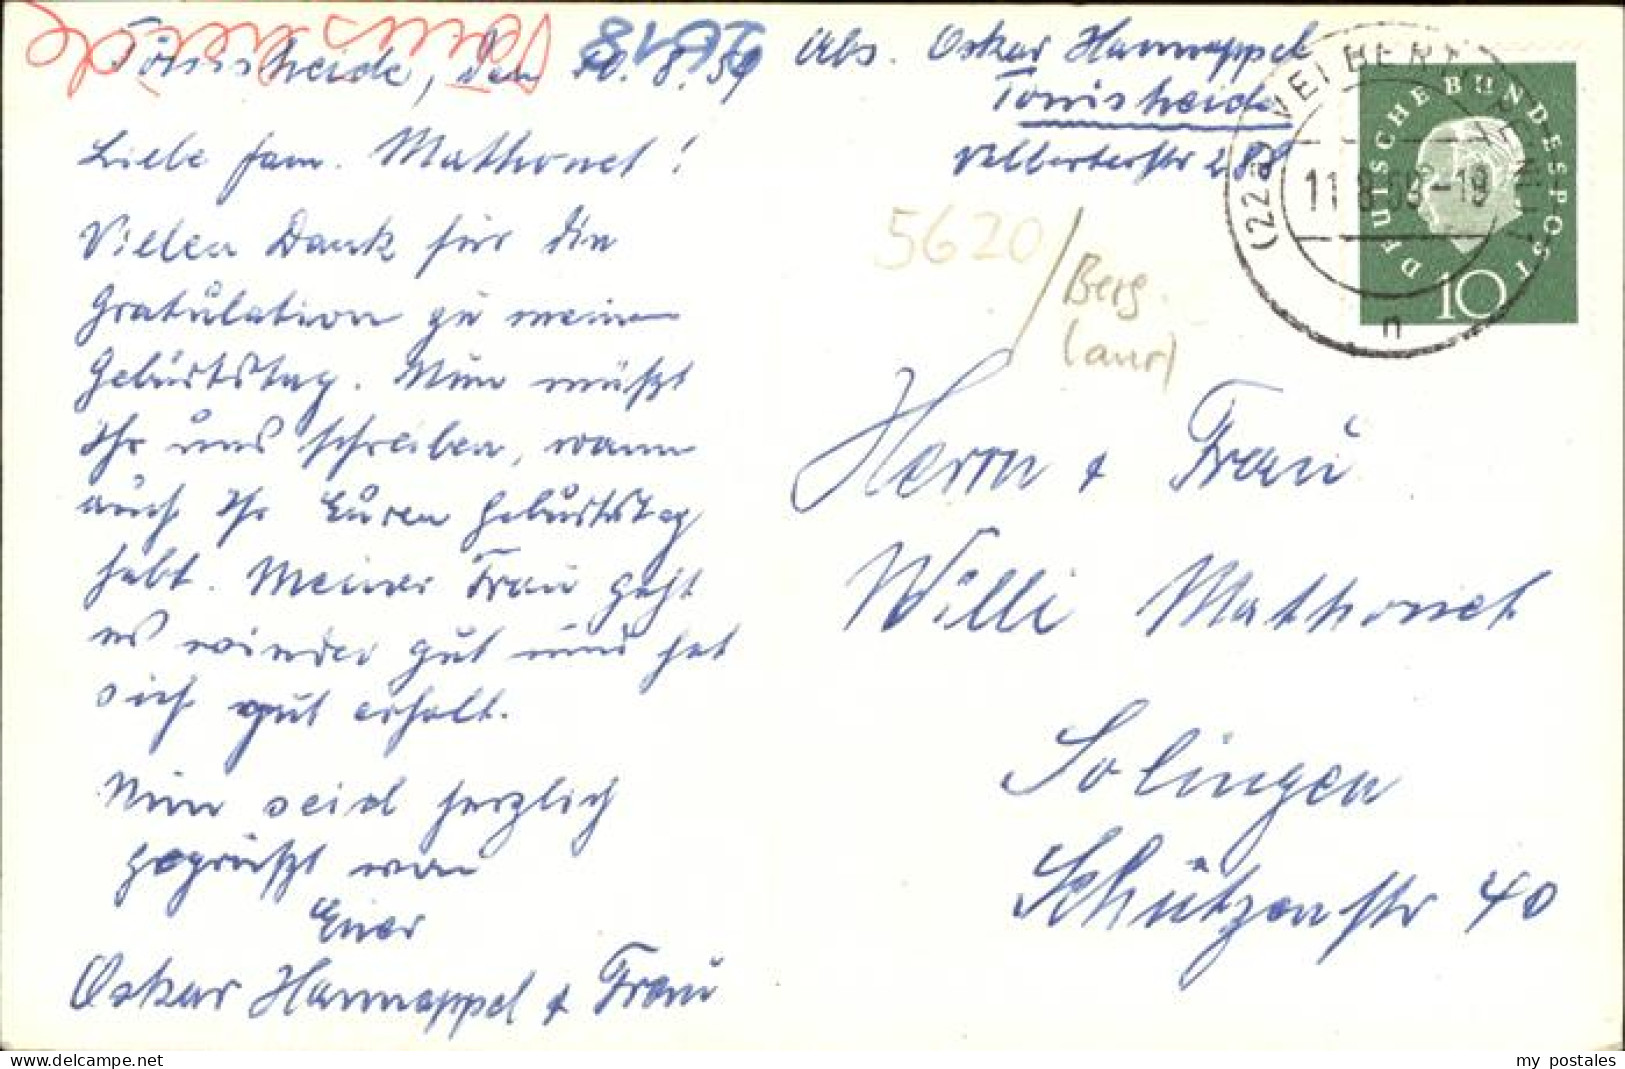 Tönisheide, den 10. 8. 59
Liebe Fam. Mathonet!
Vielen Dank für die
Gratulation zu meinem
Geburtstag. Nun müßt
Ihr uns schreiben, wann
auch Ihr Euren Geburtstag
habt. Meiner Frau geht
es wieder gut und hat
sich gut erholt.
Nun seid herzlich
gegrüßt von
Euer
Oskar Hannappel + Frau
Abs. Oskar Hannappel
Tönisheide
Velberterstr 288
5620
Berg.
VELBERT
(22a)
11.8.59-19
n
DEUTSCHE BUNDESPOST
10
Herrn + Frau
Willi Mathonet
Solingen
Schützenstr 40
my postales